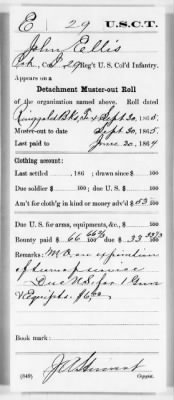 E 29 U.S.C.T.
John Ellis
Co. 29 Reg't U.S. Col'd Infantry.
Appears on a
Detachment Muster-out Roll
of the organization named above. Roll dated
Ringgold Bks, Tx Sept 30, 1865.
Muster-out to date Sept 30, 1865.
Last paid to June 30, 1864
Clothing account:
Last settled , 186 ; drawn since $ 100
Due soldier $ 100 ; due U.S. $ 100
Am't for cloth'g in kind or money adv'd $ 53 100
Due U.S. for arms, equipments, &c., $ 100
Bounty paid $ 66 66⅔ 100 ; due $ 33 33⅓ 100
Remarks: M.O. on expiration
of term of
Due U.S. for 1 Gun
& Equipts. $6.00
Book mark:
(849) Copyist.